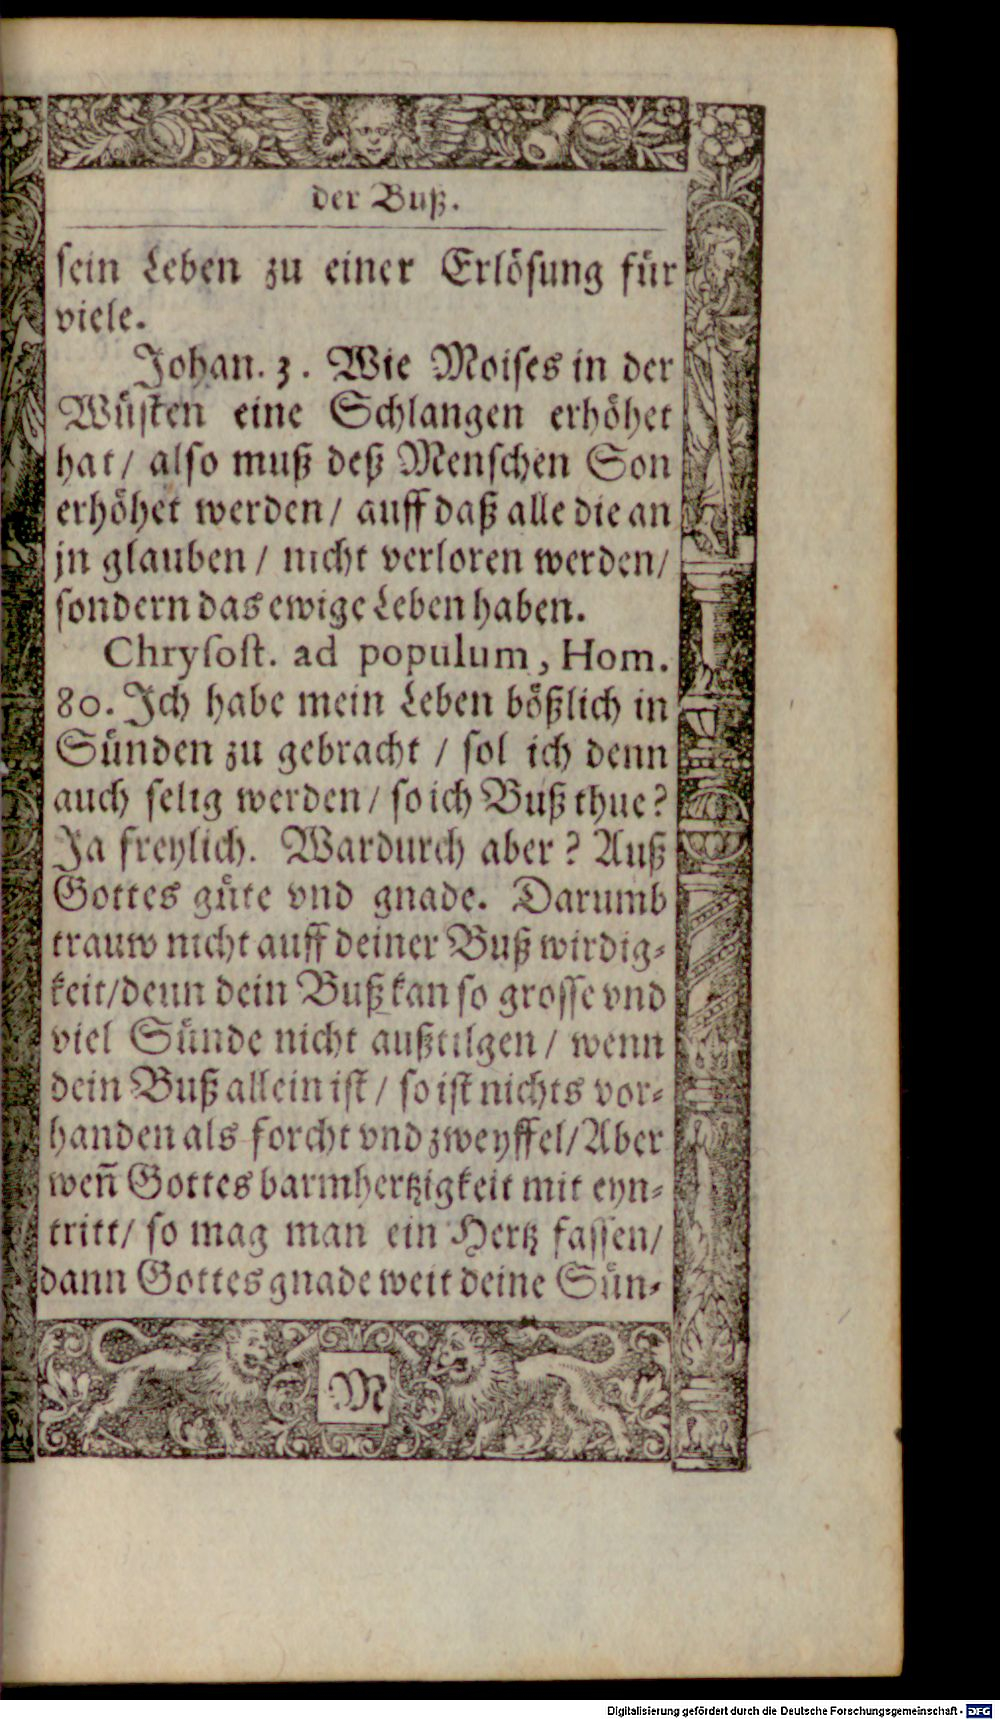 der Buß.
sein Leben zu einer Erlösung für
viele.
Johan. 3. Wie Moises in der
Wüsten eine Schlangen erhöhet
hat/ also muß deß Menschen Son
erhöhet werden/ auff daß alle die an
jn glauben / nicht verloren werden/
sondern das ewige Leben haben.
Chrysost. ad populum, Hom.
80. Ich habe mein Leben bößlich in
Sünden zu gebracht / sol ich denn
auch selig werden / so ich Buß thue?
Ja freylich. Wardurch aber? Auß
Gottes güte vnd gnade. Darumb
trauw nicht auff deiner Buß wirdig-
keit/denn dein Buß kan so grosse vnd
viel Sünde nicht außtilgen / wenn
dein Buß allein ist / so ist nichts vor-
handen als forcht vnd zweyffel/Aber
weñ Gottes barmhertzigkeit mit eyn-
tritt/ so mag man ein Hertz fassen/
dann Gottes gnade weit deine Sün-
M
Digitalisierung gefördert durch die Deutsche Forschungsgemeinschaft - DFG